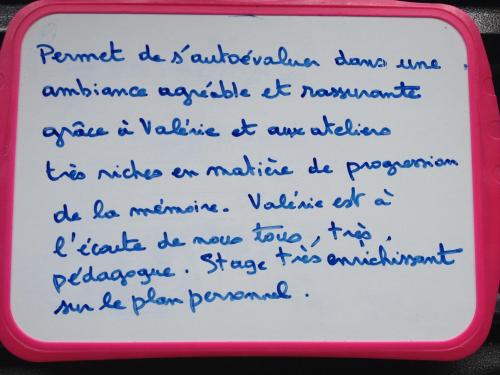 Permet de s'autoévaluer dans une
ambiance agréable et rassurante
grâce à Valérie et aux ateliers
très riches en matière de progression
de la mémoire. Valérie est à
l'écoute de nous tous, très,
pédagogue. Stage très enrichissant
sur le plan personnel.